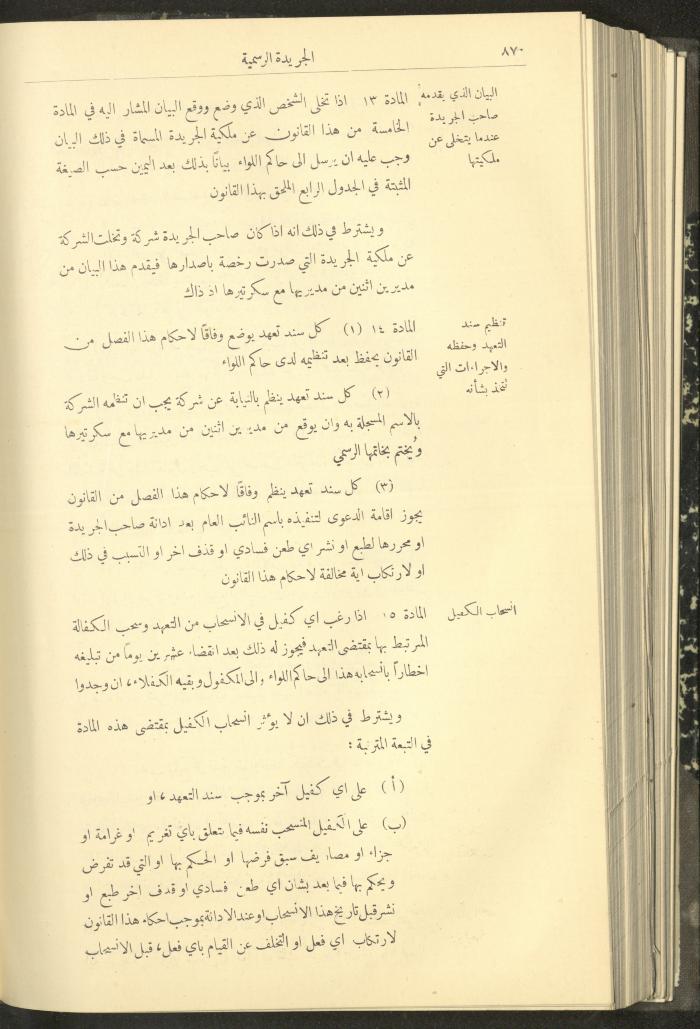 ٨٧٠
الجريدة الرسمية
البيان الذي يقدمه
صاحب الجريدة
عندما يتخلى عن
ملكيتها
المادة ١٣ اذا تخلى الشخص الذي وضع ووقع البيان المشار اليه في المادة
الخامسة من هذا القانون عن ملكية الجريدة المسماة في ذلك البيان
وجب عليه ان يرسل الى حاكم اللواء بياناً بذلك بعد اليمين حسب الصيغة
المثبتة في الجدول الرابع الملحق بهذا القانون
ويشترط في ذلك انه اذا كان صاحب الجريدة شركة وتخلت الشركة
عن ملكية الجريدة التي صدرت رخصة باصدارها فيقدم هذا البيان من
مديرين اثنين من مديريها مع سكرتيرها اذ ذاك
تنظيم سند
التعهد وحفظه
والاجراءات التي
تتخذ بشأنه
المادة ١٤ (١) كل سند تعهد يوضع وفاقاً لاحكام هذا الفصل من
القانون يحفظ بعد تنظيمه لدى حاكم اللواء
(٢) كل سند تعهد ينظم بالنيابة عن شركة يجب ان تنظمه الشركة
بالاسم المسجلة به وان يوقع من مديرين اثنين من مديريها مع سكرتيرها
ويُختم بخاتمها الرسمي
(٣) كل سند تعهد ينظم وفاقاً لاحكام هذا الفصل من القانون
يجوز اقامة الدعوى لتنفيذه باسم النائب العام بعد ادانة صاحب الجريدة
او محررها لطبع او نشر اي طعن فسادي او قذف اخر او التسبب في ذلك
او لارتكاب اية مخالفة لاحكام هذا القانون
انسحاب الكفيل
المادة ١٥ اذا رغب اي كفيل في الانسحاب من التعهد وسحب الكفالة
المرتبط بها بمقتضى التعهد فيجوز له ذلك بعد انقضاء عشرين يوماً من تبليغه
اخطاراً بانسحابه هذا الى حاكم اللواء والى المكفول وبقيه الكفلاء، ان وجدوا
ويشترط في ذلك ان لا يؤثر انسحاب الكفيل بمقتضى هذه المادة
في التبعة المترتبة :
(أ) على اي كفيل آخر بموجب سند التعهد، او
(ب) على الكفيل المنسحب نفسه فيما يتعلق باي تغريم او غرامة او
جزاء او مصاريف سبق فرضها او الحكم بها او التي قد تفرض
ويحكم بها فيما بعد بشان اي طعن فسادي او قذف اخر طبع او
نشر قبل تاريخ هذا الانسحاب او عند الادانة بموجب احكام هذا القانون
لارتكاب اي فعل او التخلف عن القيام باي فعل، قبل الانسحاب